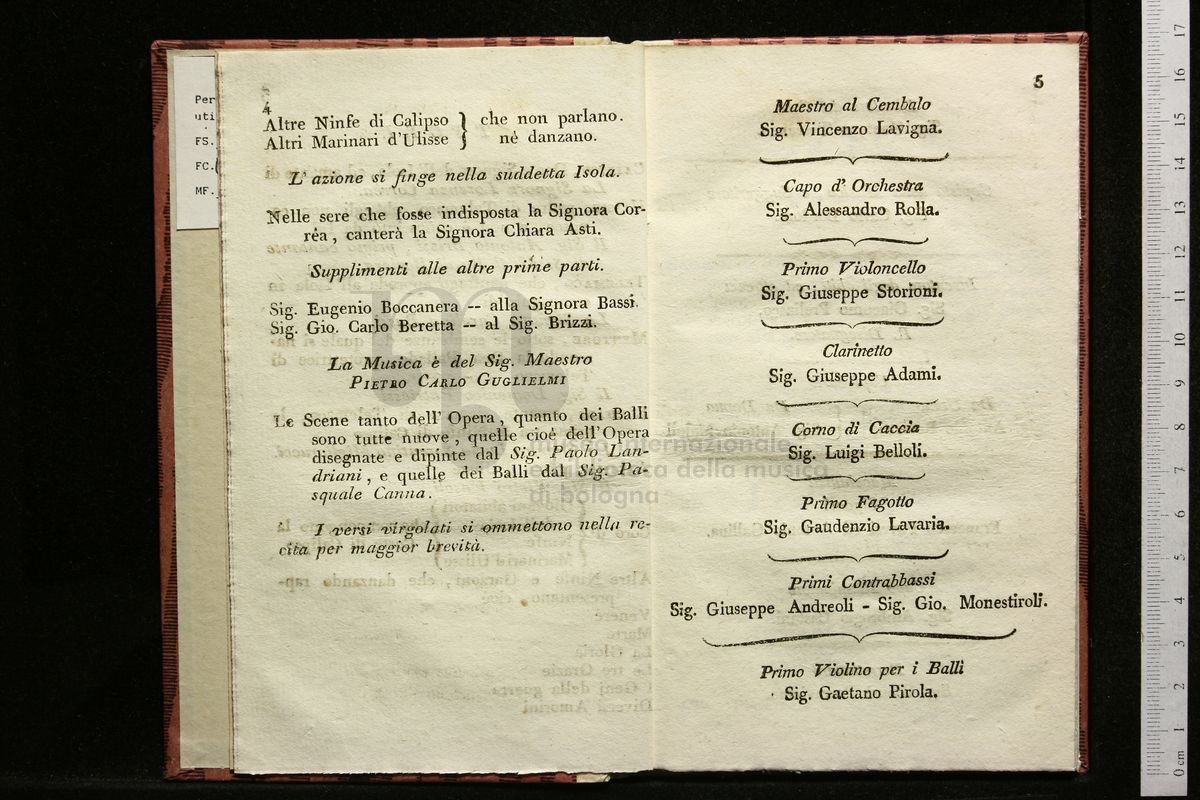 Per
uti
FS.
FC.
MF.
4
Altre Ninfe di Calipso } che non parlano.
Altri Marinari d'Ulisse } nè danzano.
L' azione si finge nella suddetta Isola.
Nelle sere che fosse indisposta la Signora Cor-
rêa , canterà la Signora Chiara Asti.
Supplimenti alle altre prime parti.
Sig. Eugenio Boccanera -- alla Signora Bassi.
Sig. Gio. Carlo Beretta -- al Sig. Brizzi.
La Musica è del Sig. Maestro
PIETRO CARLO GUGLIELMI
Le Scene tanto dell' Opera , quanto dei Balli
sono tutte nuove , quelle cioè dell' Opera
disegnate e dipinte dal Sig. Paolo Lan-
driani , e quelle dei Balli dal Sig. Pa-
squale Canna.
I versi virgolati si ommettono nella re-
cita per maggior brevità.
5
Maestro al Cembalo
Sig. Vincenzo Lavigna.
Capo d' Orchestra
Sig. Alessandro Rolla.
Primo Violoncello
Sig. Giuseppe Storioni.
Clarinetto
Sig. Giuseppe Adami.
Corno di Caccia
Sig. Luigi Belloli.
Primo Fagotto
Sig. Gaudenzio Lavaria.
Primi Contrabbassi
Sig. Giuseppe Andreoli - Sig. Gio. Monestiroli.
Primo Violino per i Balli
Sig. Gaetano Pirola.
museo internazionale
e biblioteca della musica
di bologna
17
16
15
14
13
12
11
10
9
8
7
6
5
4
3
2
1
0 cm